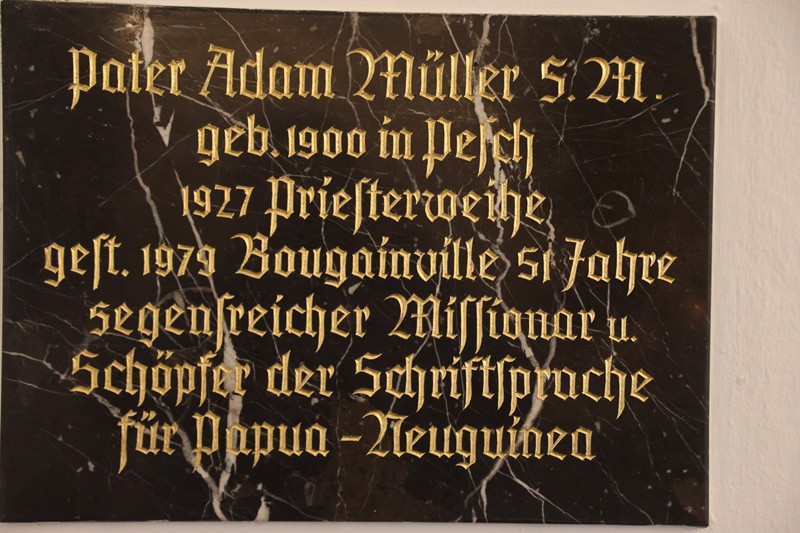 Pater Adam Müller S. M.
geb. 1900 in Pesch
1927 Priesterweihe
gest. 1979 Bougainville 51 Jahre
segensreicher Missionar u.
Schöpfer der Schriftsprache
für Papua - Neuguinea